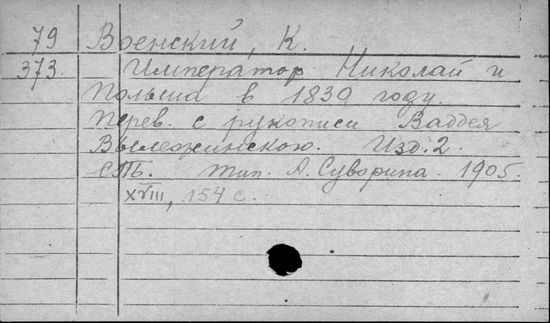 79 Военский, К.
373. Император Николай и
Польша в 1839 году.
Перев. с рукописи Ваддея
Вылежинского. Изд. 2.
СПб. тип. А. Суворина. 1905.
XVIII, 154 с.